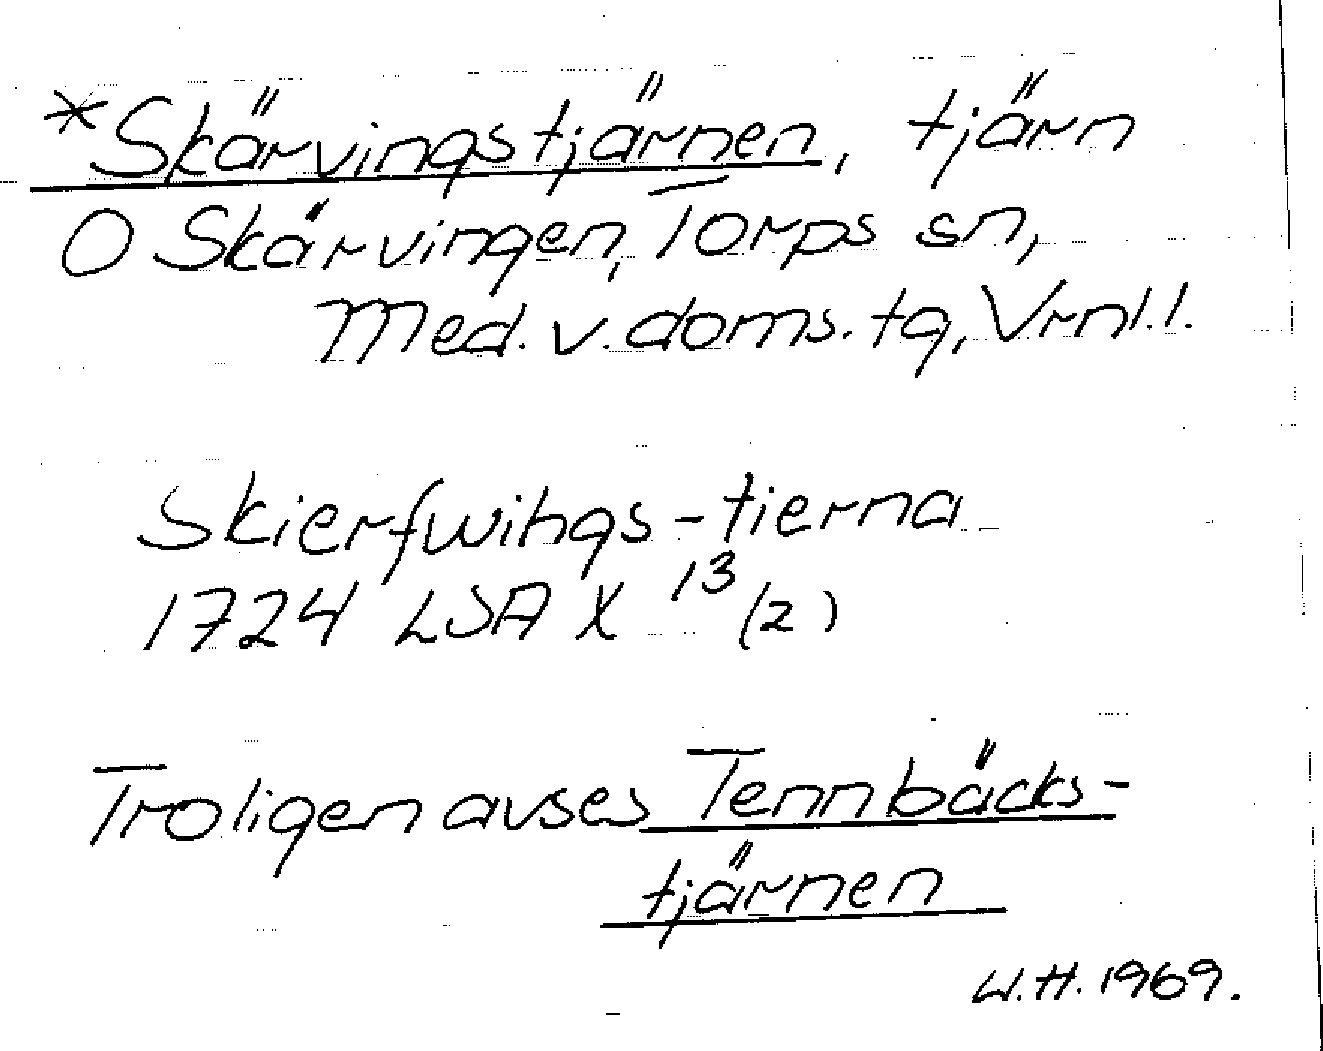 *Skärvingstjärnen, tjärn
O Skärvingen, Torps sn,
Med. v. doms. tg, Vrml. l.
Skierfwings-tierna
1724 LSA X 13 (2)
Troligen avses Tennbäcks-
tjärnen
W.H. 1969.